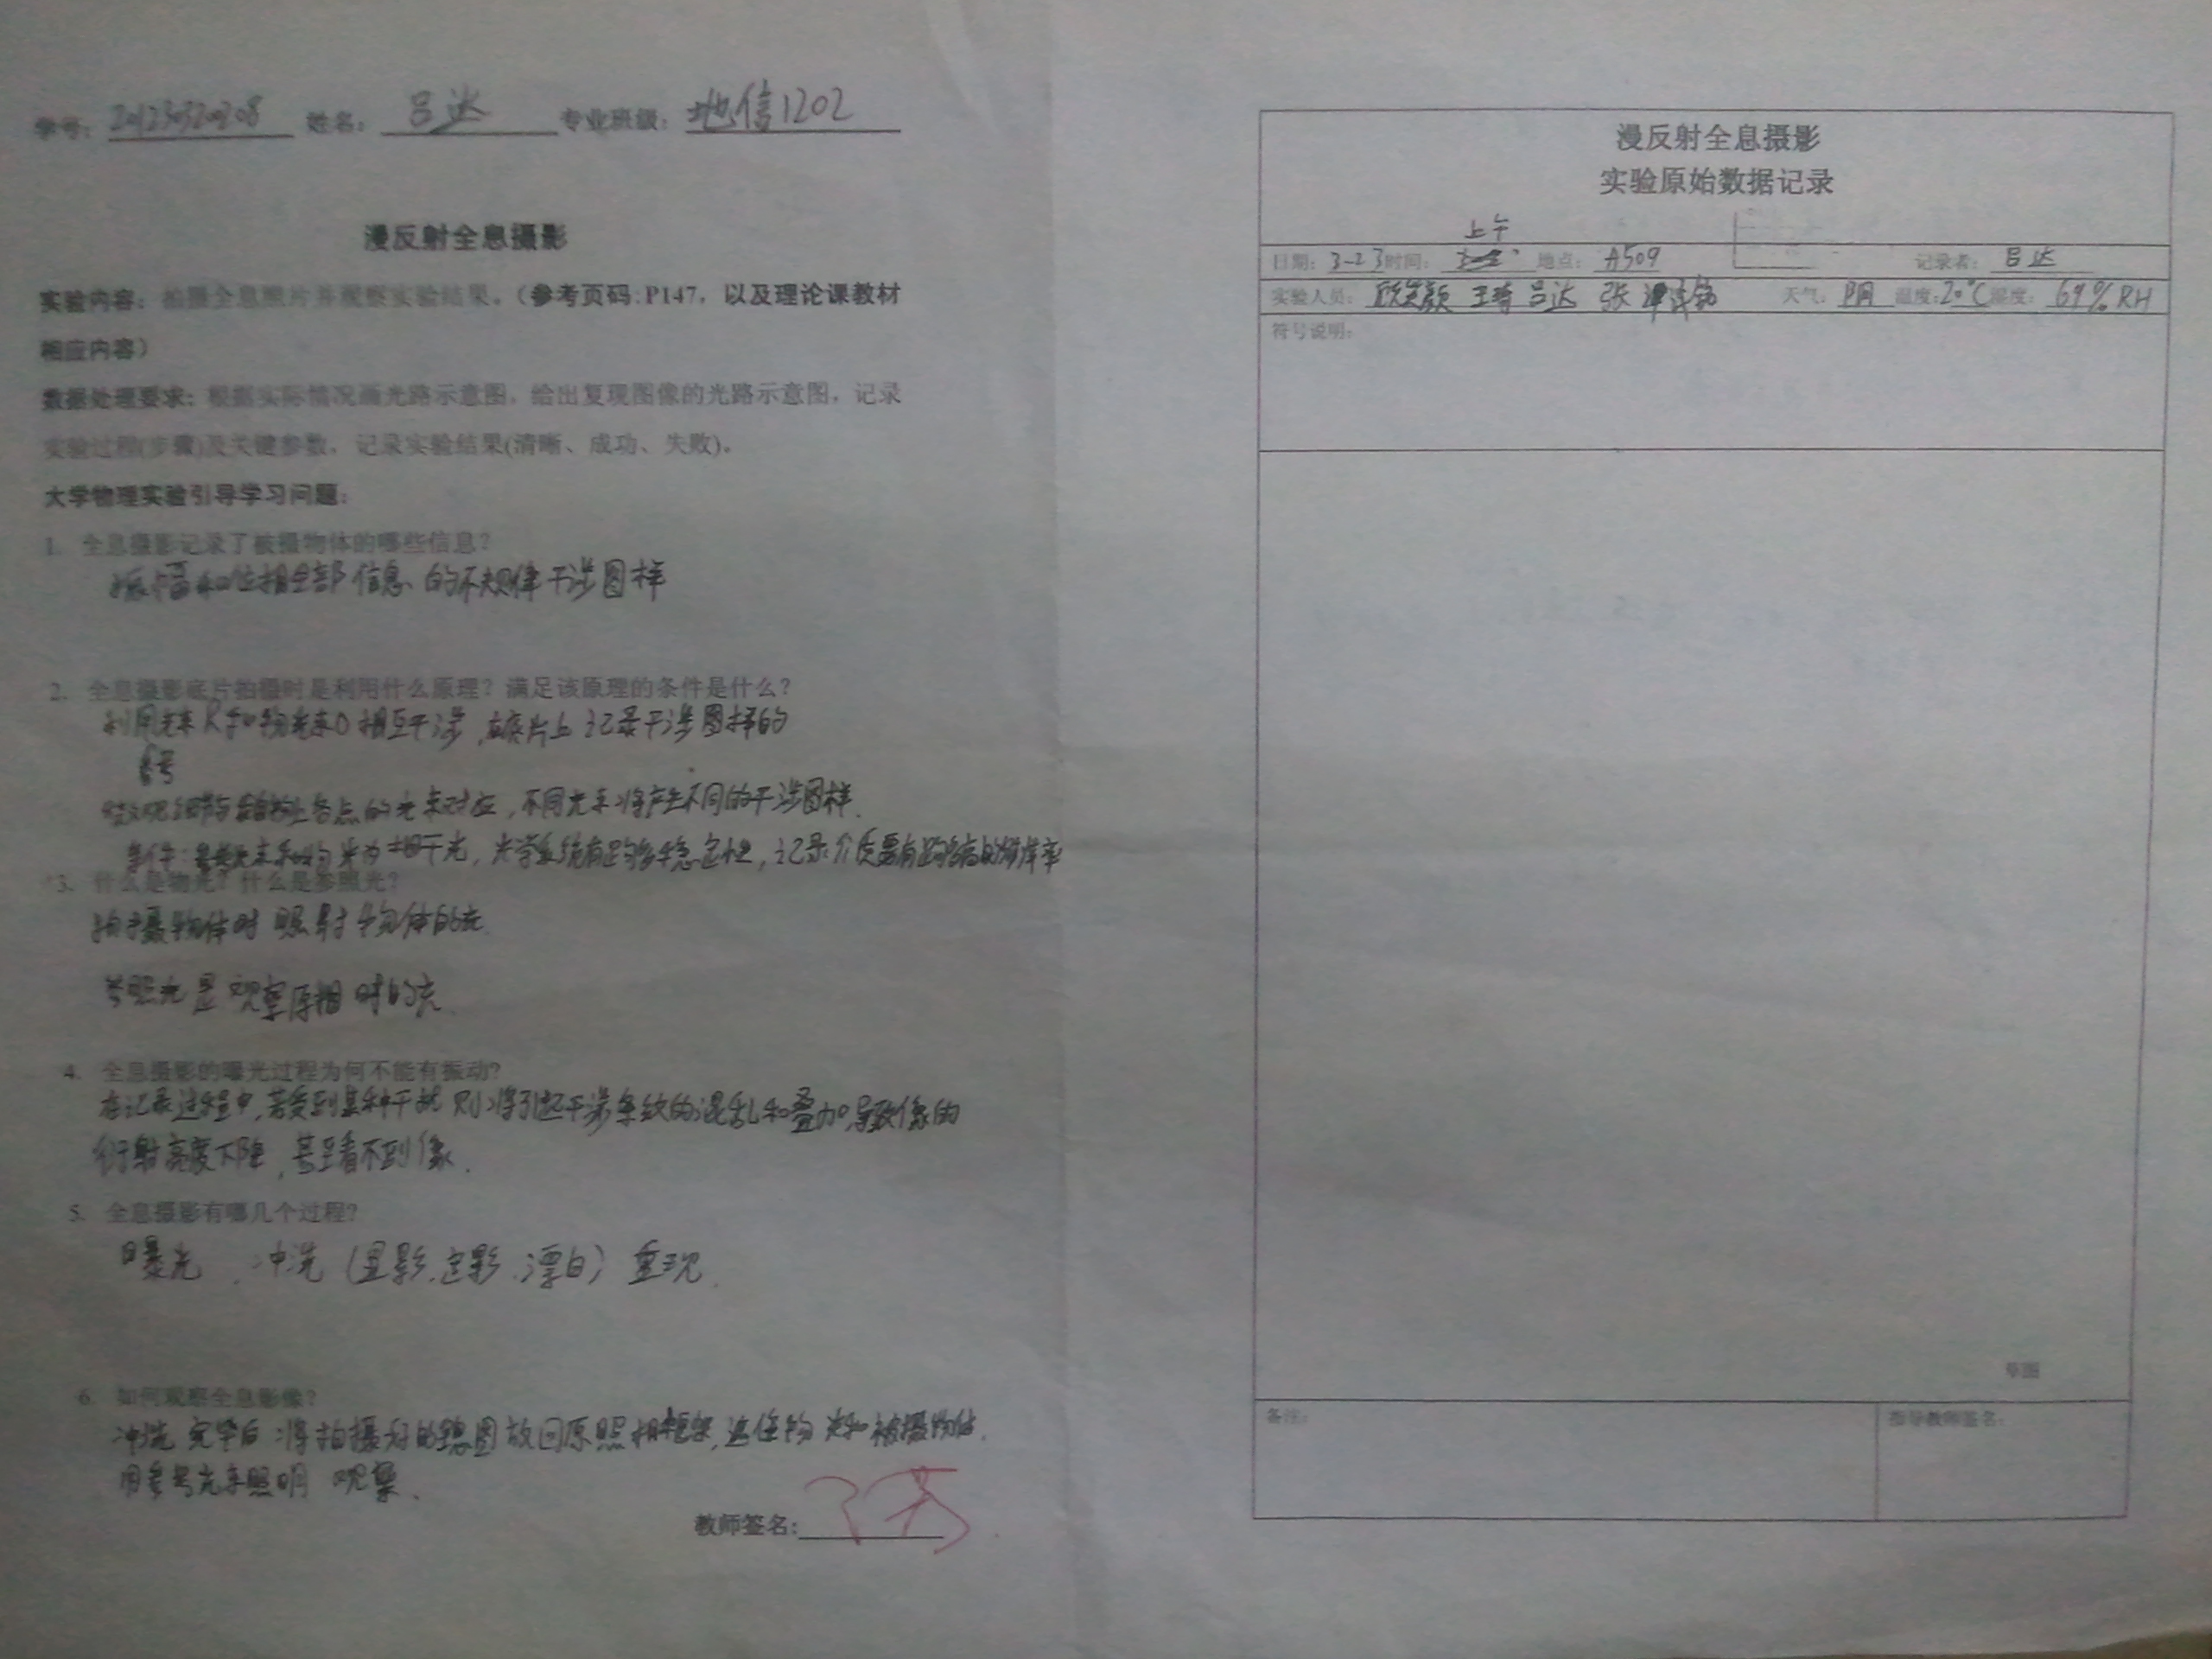 学号： 姓名：吕达 专业班级：地信1202
漫反射全息摄影
实验内容：拍摄全息照片并观察实验结果。（参考页码：P147，以及理论课教材
相应内容）
数据处理要求：根据实际情况画光路示意图，给出复现图像的光路示意图，记录
实验过程(步骤)及关键参数，记录实验结果(清晰、成功、失败)。
大学物理实验引导学习问题：
1. 全息摄影记录了被摄物体的哪些信息？
振幅和位相全部信息的不规律干涉图样
2. 全息摄影底片拍摄时是利用什么原理？满足该原理的条件是什么？
利用光束R和物光束O相互干涉，在底片上记录干涉图样的
各点的光束对应，不同光束将产生不同的干涉图样.
条件： 为相干光，光学系统有足够多稳定性，记录介质要有足够高的分辨率
3. 什么是物光？什么是参照光？
拍摄物体时照射物体的光.
参照光是观察原相时的光.
4. 全息摄影的曝光过程为何不能有振动？
在记录过程中，若受到某种干扰则将引起干涉条纹的混乱和叠加，导致像的
衍射亮度下降，甚至看不到像.
5. 全息摄影有哪几个过程？
曝光、冲洗（显影、定影、漂白）重现.
6. 如何观察全息影像？
冲洗完毕后将拍摄好的 图放回原照相框架，遮住物光和被摄物体.
用参考光束照明观察.
教师签名：
漫反射全息摄影
实验原始数据记录
上午
日期：3-23 时间： 地点：A509 记录者：吕达
实验人员： 王琦 吕达 张 天气：阴 温度：20℃ 湿度：69%RH
符号说明：
草图
备注： 指导教师签名：